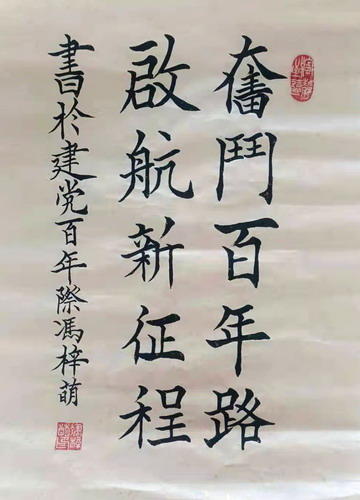 奮鬥百年路
啟航新征程
書於建党百年際馮梓萌